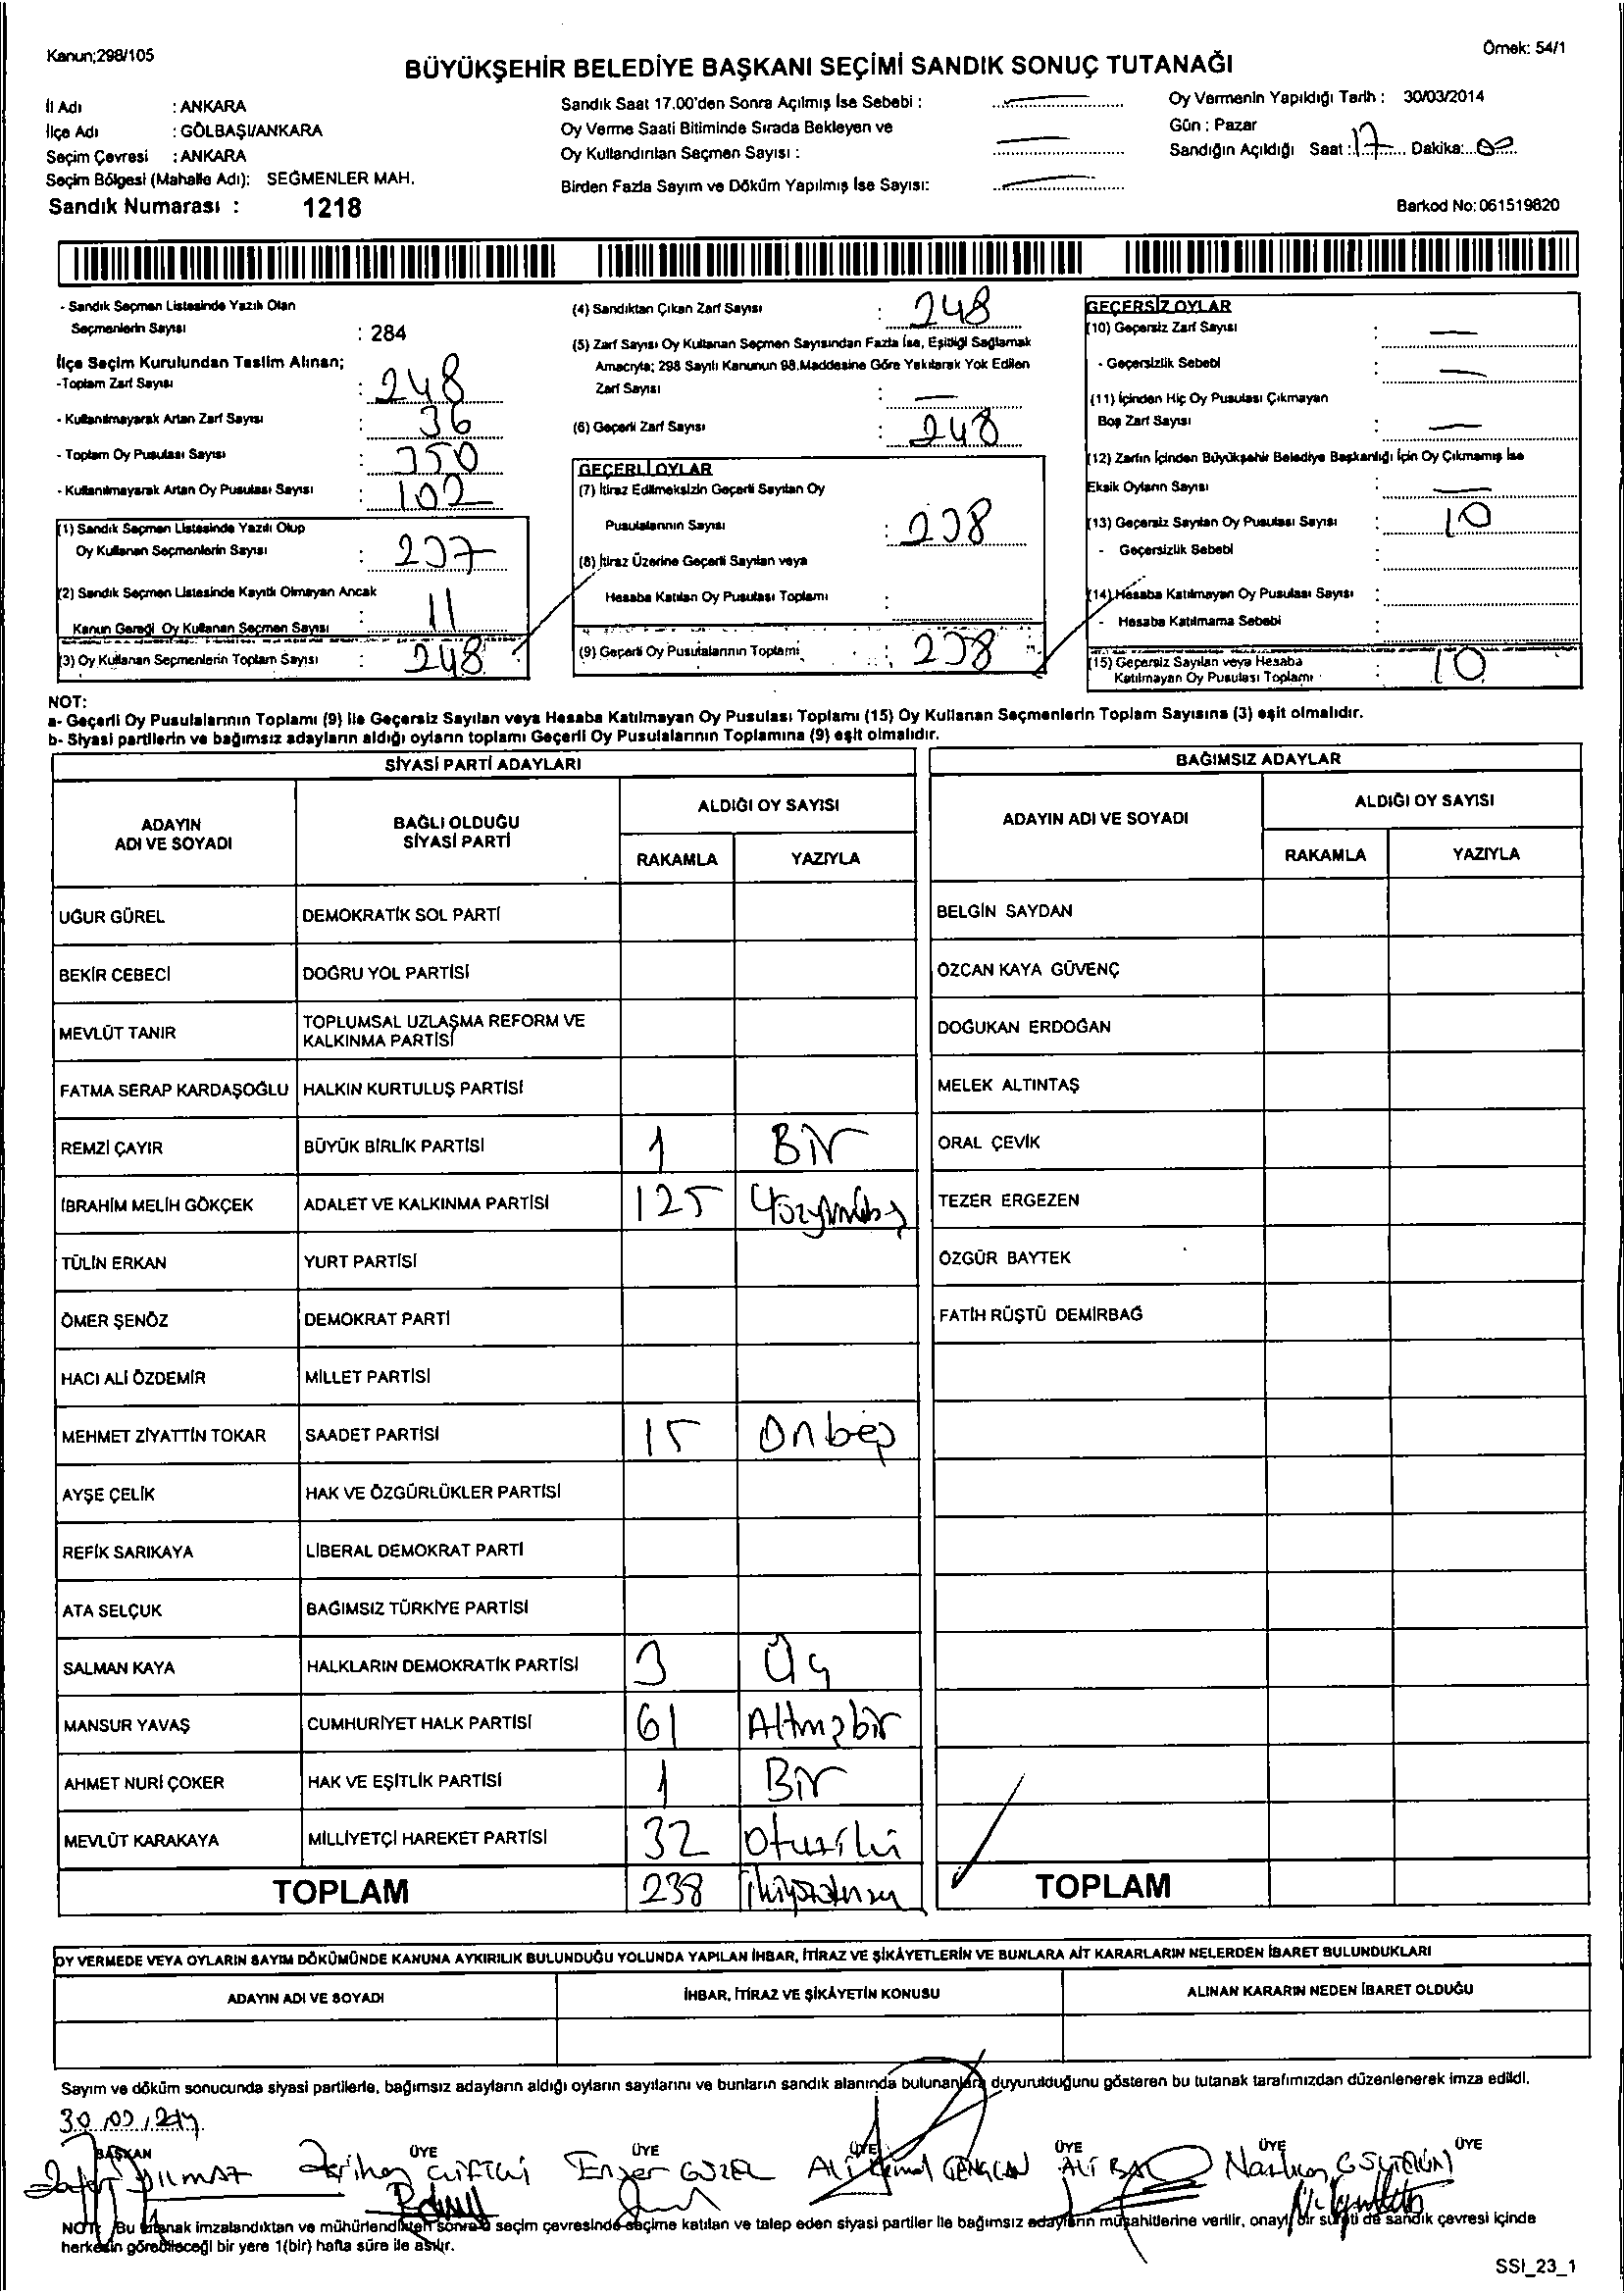 Kanun;298/105
Örnek: 54/1
BÜYÜKŞEHİR BELEDİYE BAŞKANI SEÇİMİ SANDIK SONUÇ TUTANAĞI
İl Adı : ANKARA
İlçe Adı : GÖLBAŞI/ANKARA
Seçim Çevresi : ANKARA
Seçim Bölgesi (Mahalle Adı): SEĞMENLER MAH.
Sandık Numarası : 1218
Sandık Saat 17.00'den Sonra Açılmış İse Sebebi :
Oy Verme Saati Bitiminde Sırada Bekleyen ve
Oy Kullandırılan Seçmen Sayısı :
Birden Fazla Sayım ve Döküm Yapılmış İse Sayısı:
Oy Vermenin Yapıldığı Tarih : 30/03/2014
Gün : Pazar
Sandığın Açıldığı Saat : 17 Dakika: 00
Barkod No: 061519820
- Sandık Seçmen Listesinde Yazılı Olan
Seçmenlerin Sayısı : 284
İlçe Seçim Kurulundan Teslim Alınan;
-Toplam Zarf Sayısı : 248
- Kullanılmayarak Artan Zarf Sayısı : 36
- Toplam Oy Pusulası Sayısı : 350
- Kullanılmayarak Artan Oy Pusulası Sayısı : 102
(1) Sandık Seçmen Listesinde Yazılı Olup
Oy Kullanan Seçmenlerin Sayısı : 237
(2) Sandık Seçmen Listesinde Kayıtlı Olmayan Ancak
Kanun Gereği Oy Kullanan Seçmen Sayısı : 11
(3) Oy Kullanan Seçmenlerin Toplam Sayısı : 248
(4) Sandıktan Çıkan Zarf Sayısı : 248
(5) Zarf Sayısı Oy Kullanan Seçmen Sayısından Fazla İse, Eşitliği Sağlamak
Amacıyla; 298 Sayılı Kanunun 98.Maddesine Göre Yakılarak Yok Edilen
Zarf Sayısı : —
(6) Geçerli Zarf Sayısı : 248
GEÇERLİ OYLAR
(7) İtiraz Edilmeksizin Geçerli Sayılan Oy
Pusulalarının Sayısı : 238
(8) İtiraz Üzerine Geçerli Sayılan veya
Hesaba Katılan Oy Pusulası Toplamı :
(9) Geçerli Oy Pusulalarının Toplamı : 238
GEÇERSİZ OYLAR
(10) Geçersiz Zarf Sayısı : —
- Geçersizlik Sebebi : —
(11) İçinden Hiç Oy Pusulası Çıkmayan
Boş Zarf Sayısı : —
(12) Zarfın İçinden Büyükşehir Belediye Başkanlığı İçin Oy Çıkmamış İse
Eksik Oyların Sayısı : —
(13) Geçersiz Sayılan Oy Pusulası Sayısı : 10
- Geçersizlik Sebebi :
(14) Hesaba Katılmayan Oy Pusulası Sayısı :
- Hesaba Katılmama Sebebi :
(15) Geçersiz Sayılan veya Hesaba
Katılmayan Oy Pusulası Toplamı : 10
NOT:
a- Geçerli Oy Pusulalarının Toplamı (9) ile Geçersiz Sayılan veya Hesaba Katılmayan Oy Pusulası Toplamı (15) Oy Kullanan Seçmenlerin Toplam Sayısına (3) eşit olmalıdır.
b- Siyasi partilerin ve bağımsız adayların aldığı oyların toplamı Geçerli Oy Pusulalarının Toplamına (9) eşit olmalıdır.
SİYASİ PARTİ ADAYLARI
ADAYIN ADI VE SOYADI BAĞLI OLDUĞU SİYASİ PARTİ ALDIĞI OY SAYISI
RAKAMLA YAZIYLA
UĞUR GÜREL DEMOKRATİK SOL PARTİ
BEKİR CEBECİ DOĞRU YOL PARTİSİ
MEVLÜT TANIR TOPLUMSAL UZLAŞMA REFORM VE
KALKINMA PARTİSİ
FATMA SERAP KARDAŞOĞLU HALKIN KURTULUŞ PARTİSİ
REMZİ ÇAYIR BÜYÜK BİRLİK PARTİSİ 1 Bir
İBRAHİM MELİH GÖKÇEK ADALET VE KALKINMA PARTİSİ 125
TÜLİN ERKAN YURT PARTİSİ
ÖMER ŞENÖZ DEMOKRAT PARTİ
HACI ALİ ÖZDEMİR MİLLET PARTİSİ
MEHMET ZİYATTİN TOKAR SAADET PARTİSİ 15 Onbeş
AYŞE ÇELİK HAK VE ÖZGÜRLÜKLER PARTİSİ
REFİK SARIKAYA LİBERAL DEMOKRAT PARTİ
ATA SELÇUK BAĞIMSIZ TÜRKİYE PARTİSİ
SALMAN KAYA HALKLARIN DEMOKRATİK PARTİSİ 3 Üç
MANSUR YAVAŞ CUMHURİYET HALK PARTİSİ 61 Altmışbir
AHMET NURİ ÇOKER HAK VE EŞİTLİK PARTİSİ 1 Bir
MEVLÜT KARAKAYA MİLLİYETÇİ HAREKET PARTİSİ 32 Otuziki
TOPLAM 238
BAĞIMSIZ ADAYLAR
ADAYIN ADI VE SOYADI ALDIĞI OY SAYISI
RAKAMLA YAZIYLA
BELGİN SAYDAN
ÖZCAN KAYA GÜVENÇ
DOĞUKAN ERDOĞAN
MELEK ALTINTAŞ
ORAL ÇEVİK
TEZER ERGEZEN
ÖZGÜR BAYTEK
FATİH RÜŞTÜ DEMİRBAĞ
TOPLAM
OY VERMEDE VEYA OYLARIN SAYIM DÖKÜMÜNDE KANUNA AYKIRILIK BULUNDUĞU YOLUNDA YAPILAN İHBAR, İTİRAZ VE ŞİKÂYETLERİN VE BUNLARA AİT KARARLARIN NELERDEN İBARET BULUNDUKLARI
ADAYIN ADI VE SOYADI İHBAR, İTİRAZ VE ŞİKÂYETİN KONUSU ALINAN KARARIN NEDEN İBARET OLDUĞU
Sayım ve döküm sonucunda siyasi partilerle, bağımsız adayların aldığı oyların sayılarını ve bunların sandık alanında bulunanlara duyurulduğunu gösteren bu tutanak tarafımızdan düzenlenerek imza edildi.
30.03.2014
BAŞKAN ÜYE ÜYE ÜYE ÜYE ÜYE ÜYE
YILMAZ ÇİFTÇİ Enver GÜZEL ALİ Kemal GENÇCAN ALİ
NOT: Bu tutanak imzalandıktan ve mühürlendikten sonra o seçim çevresinde seçime katılan ve talep eden siyasi partiler ile bağımsız adayların müşahitlerine verilir, onaylı bir sureti de sandık çevresi içinde
herkesin görebileceği bir yere 1(bir) hafta süre ile asılır.
SSI_23_1